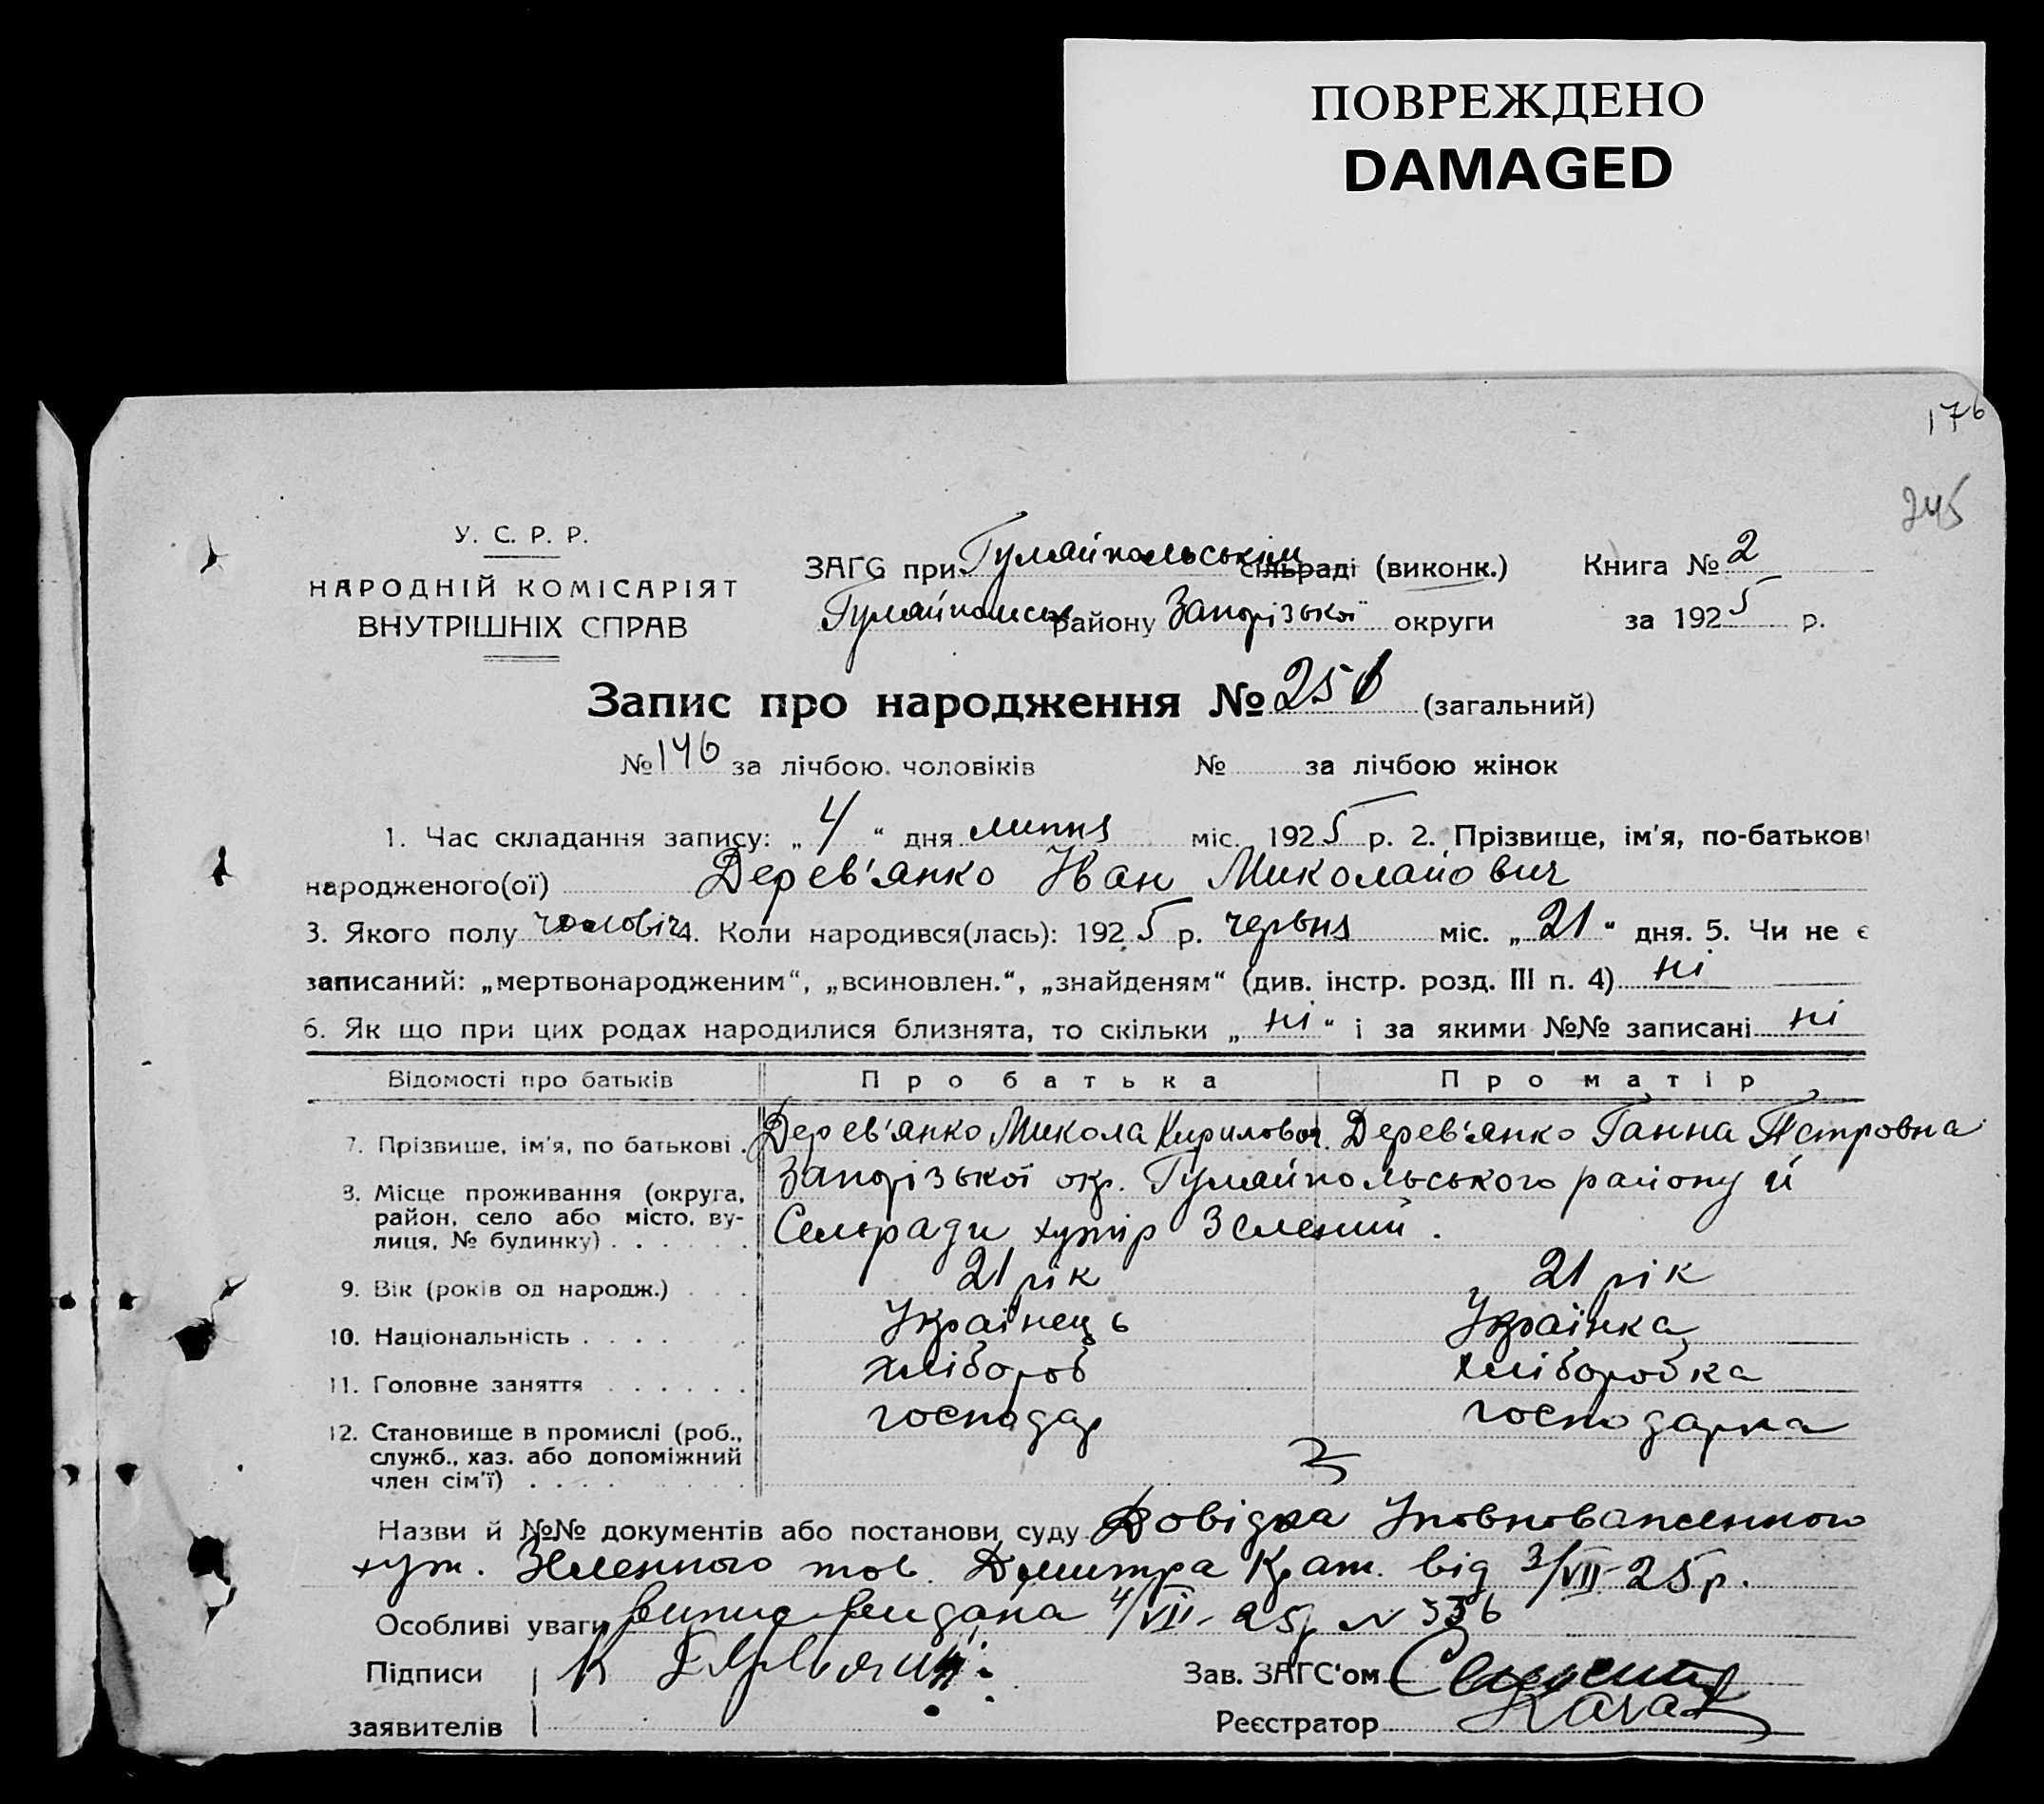 ПОВРЕЖДЕНО
DAMAGED
176
245
У. С. Р. Р.
НАРОДНІЙ КОМІСАРІЯТ
ВНУТРІШНІХ СПРАВ
ЗАГС при Гуляйпольським сільраді (виконк.) Книга № 2
Гуляйпольськ району Запорізької округи за 1925 р.
Запис про народження № 251 (загальний)
№ 146 за лічбою чоловіків № за лічбою жінок
1. Час складання запису: „4“ дня липня міс. 1925 р. 2. Прізвище, ім'я, по-батькові
народженого(ої) Дерев'янко Іван Миколайович
3. Якого полу чоловіч 4. Коли народився(лась): 1925 р. червня міс. „21“ дня. 5. Чи не є
записаний: „мертвонародженим“, „всиновлен.“, „знайденям“ (див. інстр. розд. III п. 4) ні
6. Як що при цих родах народилися близнята, то скільки „ні“ і за якими №№ записані ні
Відомості про батьків Про батька Про матір
7. Прізвище, ім'я, по батькові . Дерев'янко Микола Кирилович. Дерев'янко Ганна Петровна
8. Місце проживання (округа, Запорізької окр. Гуляйпольського району й
район, село або місто, ву-
лиця, № будинку) . . . . . . Сельради хутір Зелений.
9. Вік (років од народж.) . . . 21 рік 21 рік
10. Національність . . . . . Українець Українка
11. Головне заняття . . . . . . хлібороб хліборобка
12. Становище в промислі (роб., господар господарка
служб., хаз. або допоміжний
член сім'ї) . . . . . . . .
Назви й №№ документів або постанови суду Довідка Уповноваженного
хут. Зеленого тов. Дмитра Крат. від 3/VII-25р.
Особливі уваги випис видана 4/VII-25р N 336
Підписи К Зав. ЗАГС'ом
заявителів Реєстратор